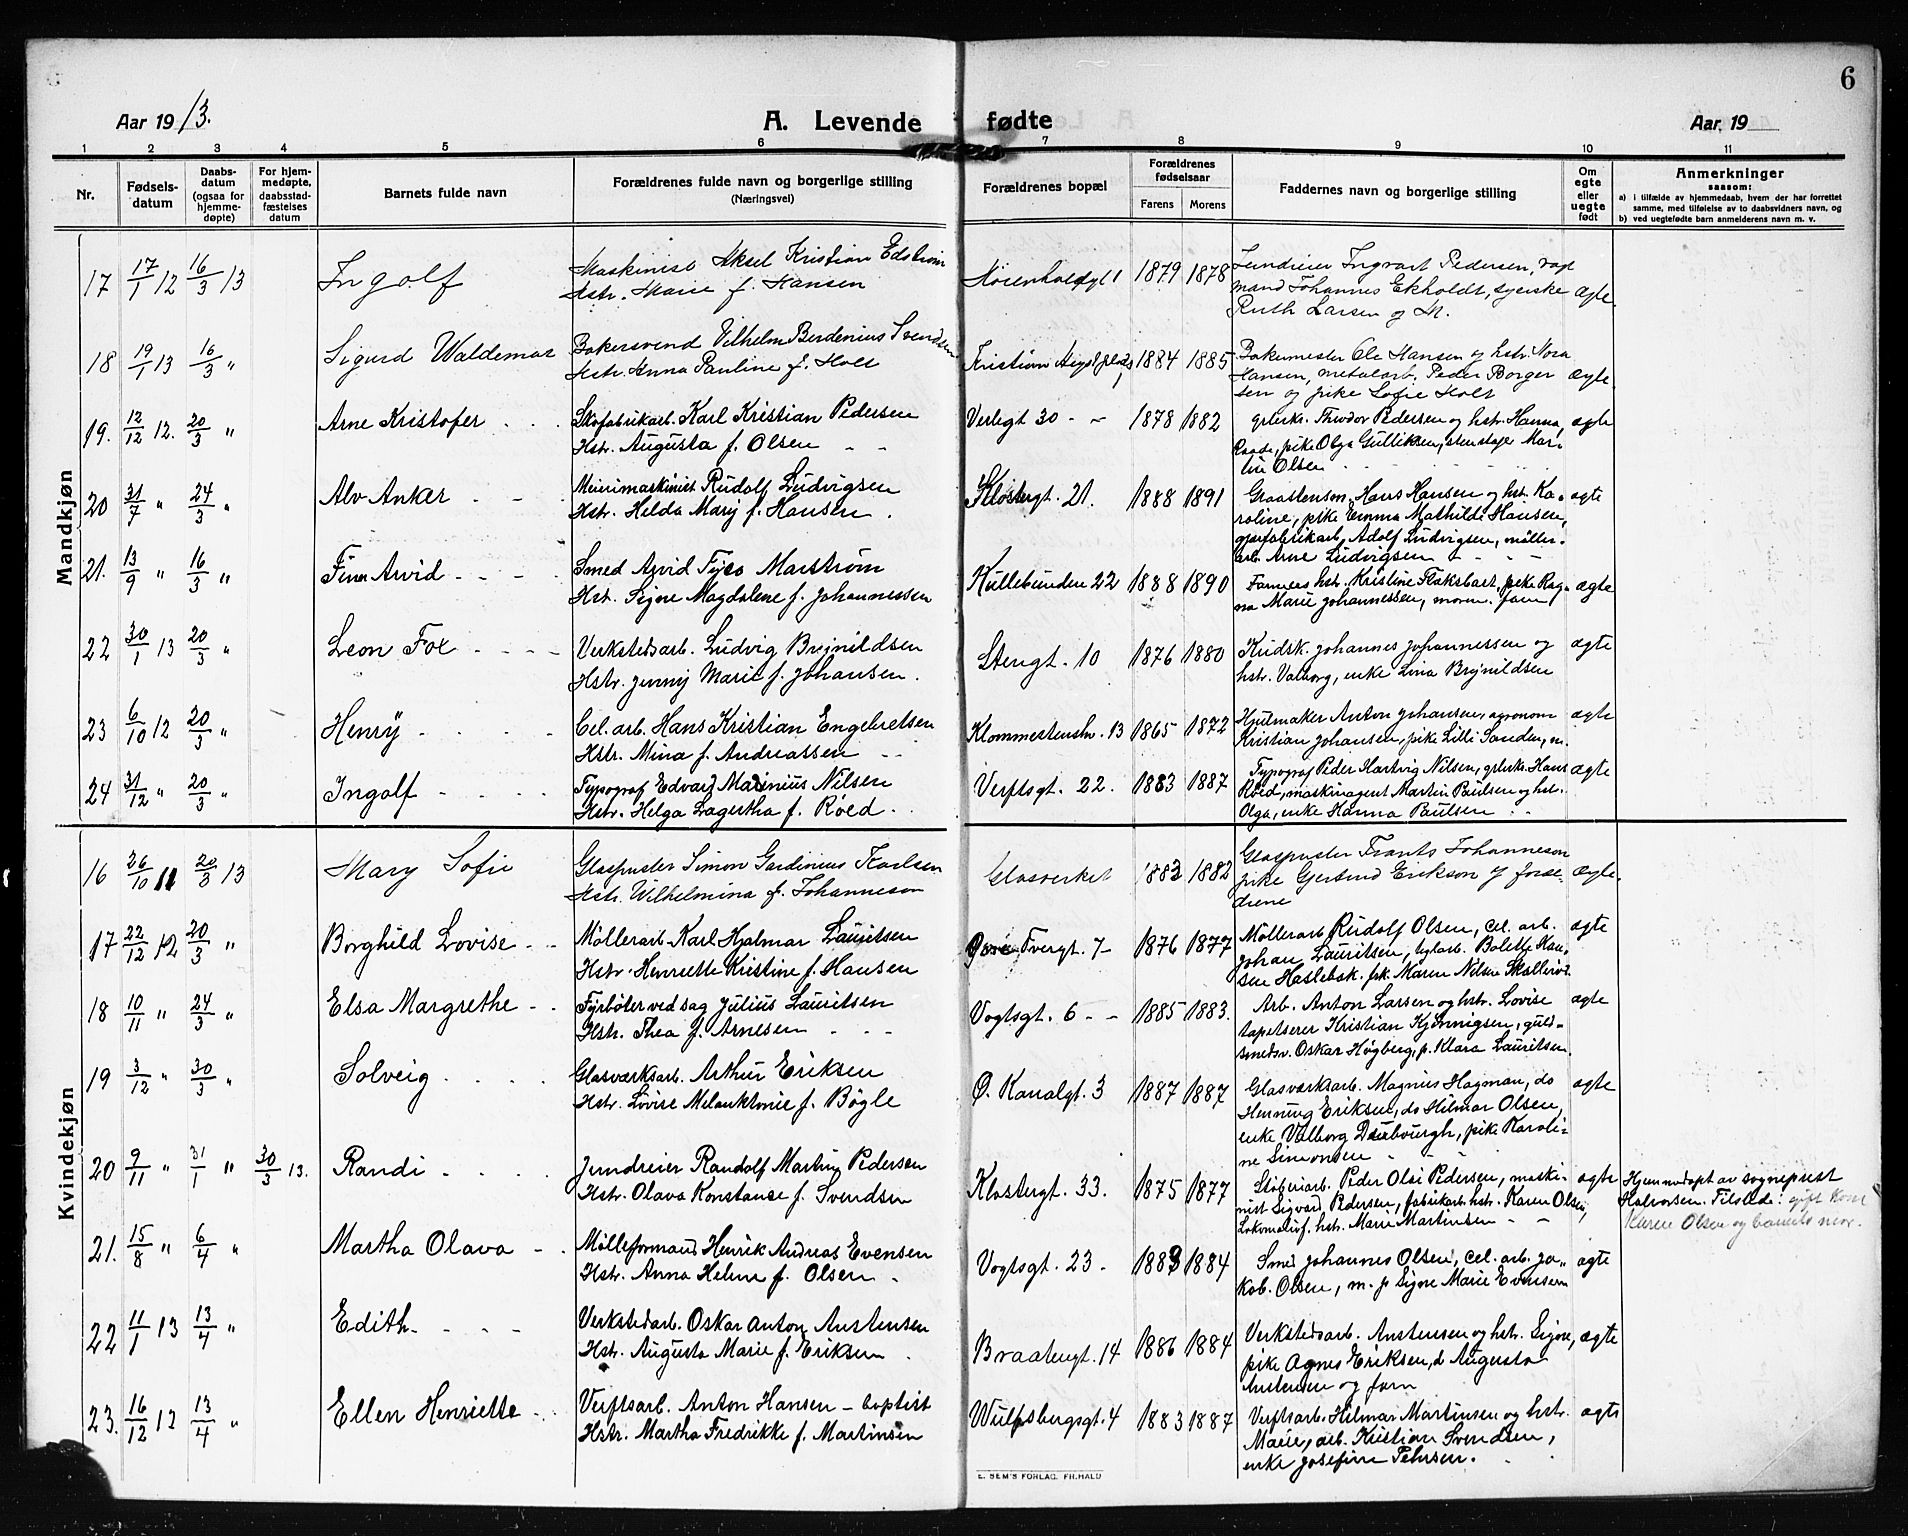 6
Aar 1913.
A. Levende fødte
Aar 19
1 2 3 4 5 6 7 8 9 10 11
Nr.
Fødsels-
datum
Daabs-
datum
(ogsaa for
hjemme-
døpte)
For hjem-
medøpte,
daabsstad-
fæstelses
datum
Barnets fulde navn
Forældrenes fulde navn og borgerlige stilling
(Næringsvei)
Forældrenes bopæl
Forældrenes
fødselsaar
Farens Morens
Faddernes navn og borgerlige stilling
Om
egte
eller
uegte
født
Anmerkninger
saasom:
a) i tilfælde av hjemmedaab, hvem der har forrettet
samme, med tilføielse av to daabsvidners navn, og
b) ved uegtefødte barn anmelderens navn m. v.
Mandkjøn
17 17/1 12 16/3 13 Ingolf
Maskinist Aksel Kristian Edstrøm
Hstr. Marie f. Hansen
1879 1878
Ingvart Pedersen,
mand Johannes Ekholdt, syerske
Ruth Larsen og M.
ægte
18 19/1 13 16/3 " Sigurd Waldemar
Bakersvend Vilhelm Berdenius Svendsen
Hstr. Anna Pauline f. Holt
1884 1885
Bakermester Ole Hansen og hstr. Nora
Hansen, metalarb. Peder Borger
sen og pike Sofie Holt
ægte
19. 12/12 12. 20/3 " Arne Kristofer
Skofabrikarb. Karl Kristian Pedersen
Hstr. Augusta f. Olsen
Verlegt 30 1878 1882
Pedersen og hstr. Hanna,
Raade, pike Olga Gulliksen,
Olsen
ægte
20 31/7 " 24/3 " Alv Anker
Meierimaskinist Rudolf Ludvigsen
Hstr. Helda Marij f. Hansen
Klostergt. 21. 1888 1891
Hans Hansen og hst. Ka-
roline, pike Emma Mathilde Hansen,
Adolf Ludvigsen, møller-
arb. Arne Ludvigsen
ægte
21. 13/9 " 16/3 " Finn Arvid
Smed Arvid Tyco Marstrøm
Hst. Signe Magdalene f. Johannessen
22 1888 1890
Farmers hst. Kristine Flaksbart, pike Rag-
na Marie Johannessen, moren. faren
ægte
22 30/1 13 20/3 " Leon Fox
Verkstedsarb. Ludvig Brynildsen
Hstr. Jenny Marie f. Johansen.
Stengt. 10 1876 1880
Kudsk. Johannes Johannessen og
hstr. Valborg, enke Lina Brynildsen
ægte
23 6/10 12 20/3 " Henry
Cel. arb. Hans Kristian Engebretsen
Hstr. Mina f. Andreassen
13 1865 1872
Hjulmaker Anton Johansen, agronom
Kristian Johansen, pike Lilli Sanden, m.
ægte
24 31/12 " 20/3 " Ingolf
Typograf Edvard Marinius Nilsen
Hstr. Helga Lagertha f. Røed
Verftsgt. 22. 1883 1887
Typograf Peder Hartvig Nilsen, Hans
Røed, maskinagent Martin Paulsen og hst.
Olga, enke Hanna Paulsen
ægte
Kvindekjøn
16 26/10 11 20/3 13 Mary Sofie
Glaspuster Simon Gardinius Karlsen
Hstr. Wilhelmina f. Johanneson
Glasverket 1883 1882
Glaspuster Frants Johanneson
pike Gertrud Erikson og foræl-
drene
ægte.
17 22/12 12 20/3 " Borghild Lovise
Møllerarb. Karl Hjalmar Lauritsen
Hstr. Henriette Kristine f. Hansen
Tvergt. 7 1876 1877
Møllerarb. Rudolf Olsen, cel. arb.
Johan Lauritsen, Bolette Han-
sen Haslebak. pk. Maren Nilsen
ægte
18 10/11 " 24/3 " Elsa Margrethe
Fyrbøter ved sag Julius Lauritsen
Hstr. Thea f. Arnesen
Vogtsgt. 6 1885 1883.
Arb. Anton Larsen og hstr. Lovise
tapetserer Kristian Kjønnigsen, guld-
smedsv. Oskar Høgberg, p. Klara Lauritsen.
ægte
19 3/12 " 30/3 " Solveig
Glasværksarb. Arthur Eriksen
Hstr. Lovise Melanktonie f. Bøgle
Ø. Kanalgt. 3 1887 1887
Glasværksarb. Magnus Hagman, do
Henning Eriksen, do Hilmar Olsen,
enke Valborg pike Karoli-
ne Simonsen
ægte
20 9/11 " 31/1 " 30/3 13. Randi
Randolf Martin Pedersen
Hstr. Olava Konstance f. Svendsen
Klostergt. 33. 1875 1877
Støberiarb. Peder Olsi Pedersen, maski-
nist Sigvard Pedersen, fabrikarb. hstr. Karen Olsen,
Lokomotivf. hstr. Marie Martinsen
ægte
Hjemmedøpt av sogneprest
Halvorsen. Tilstede: gift kone
Karen Olsen og barnets mor.
21. 15/8 " 6/4 " Martha Olava
Mølleformand Henrik Andreas Evensen
Hstr. Anna Helene f. Olsen
Vogtsgt. 23 1883 1884
Smed Johannes Olsen, cel. arb. Ja-
kob. Olsen, m. p Signe Marie Evensen
ægte
22 11/1 13 13/4 " Edith
Verkstedarb. Oskar Anton Anstensen
Hstr. Augusta Marie f. Eriksen
Braatengt. 14 1886 1884
Verkstedsarb. Anstensen og hstr. Signe,
pike Agnes Eriksen, d Augusta
Anstensen og faren
ægte
23. 16/12 12 13/4 " Ellen Henriette
Verftsarb. Anton Hansen – baptist
Hstr. Martha Fredrikke f. Martinsen
Wulfsbergsgt. 4 1883 1887
Verftsarb. Hilmar Martinsen og hstr.
Marie, arb. Kristian Svendsen,
enke Josefine Petersen.
ægte
E. SEM'S FORLAG. FR.HALD